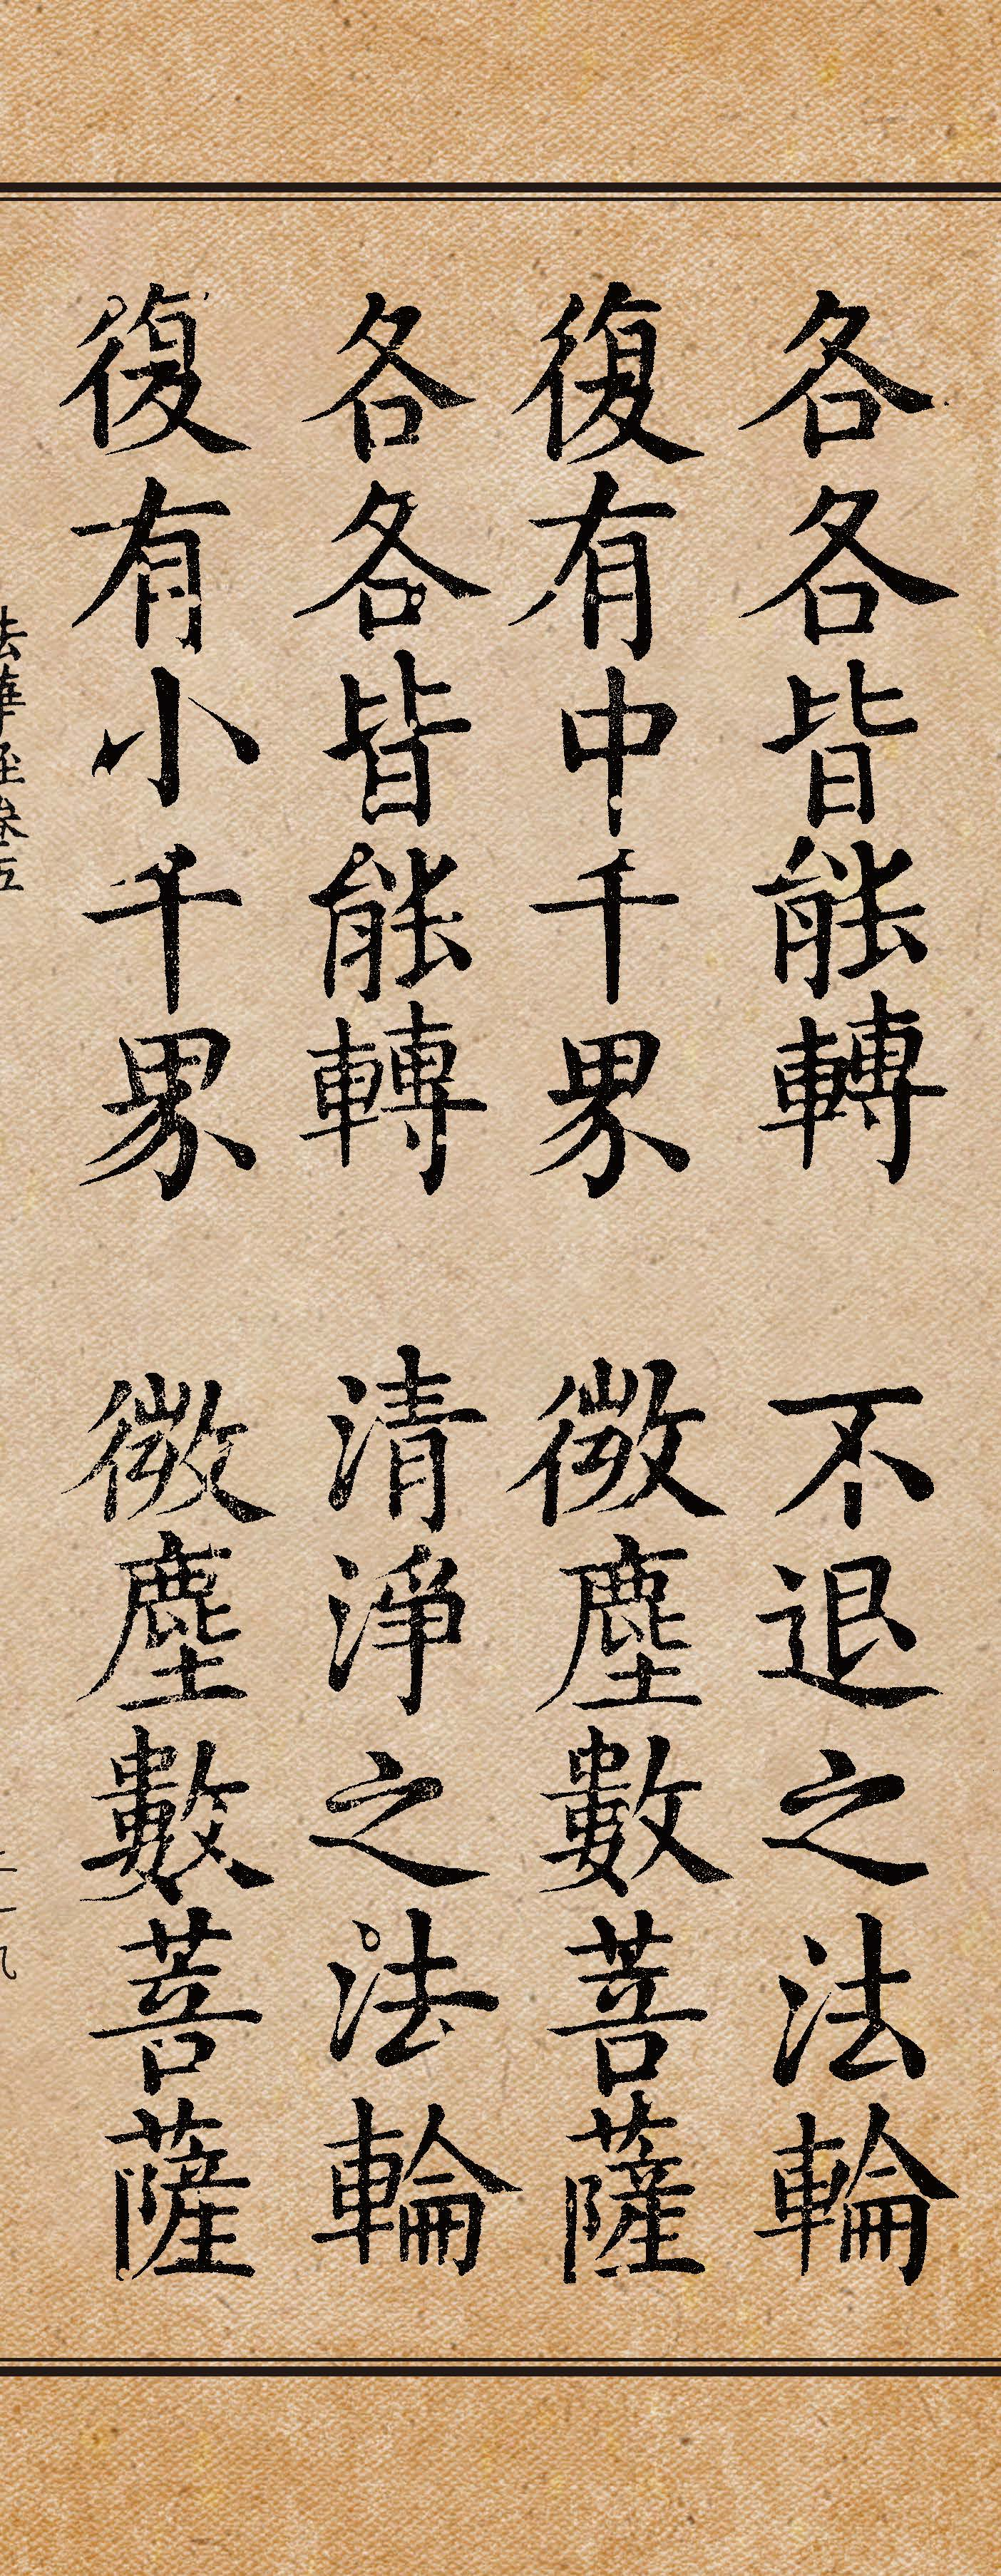 各各皆能轉　不退之法輪
復有中千界　微塵數菩薩
各各皆能轉　清淨之法輪
復有小千界　微塵數菩薩
法華經卷五